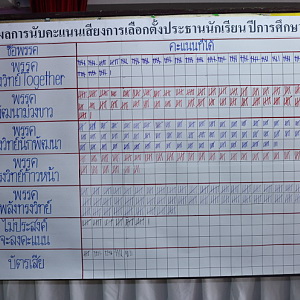 ผลการนับคะแนนเสียงการเลือกตั้งประธานนักเรียน ปีการศึกษา
ชื่อพรรค คะแนนที่ได้
พรรค
วิทย์Together
พรรค
พัฒนาม่วงขาว
พรรค
วิทย์นักพัฒนา
พรรค
วิทย์ก้าวหน้า
พรรค
พลังทรงวิทย์
ไม่ประสงค์
จะลงคะแนน
บัตรเสีย